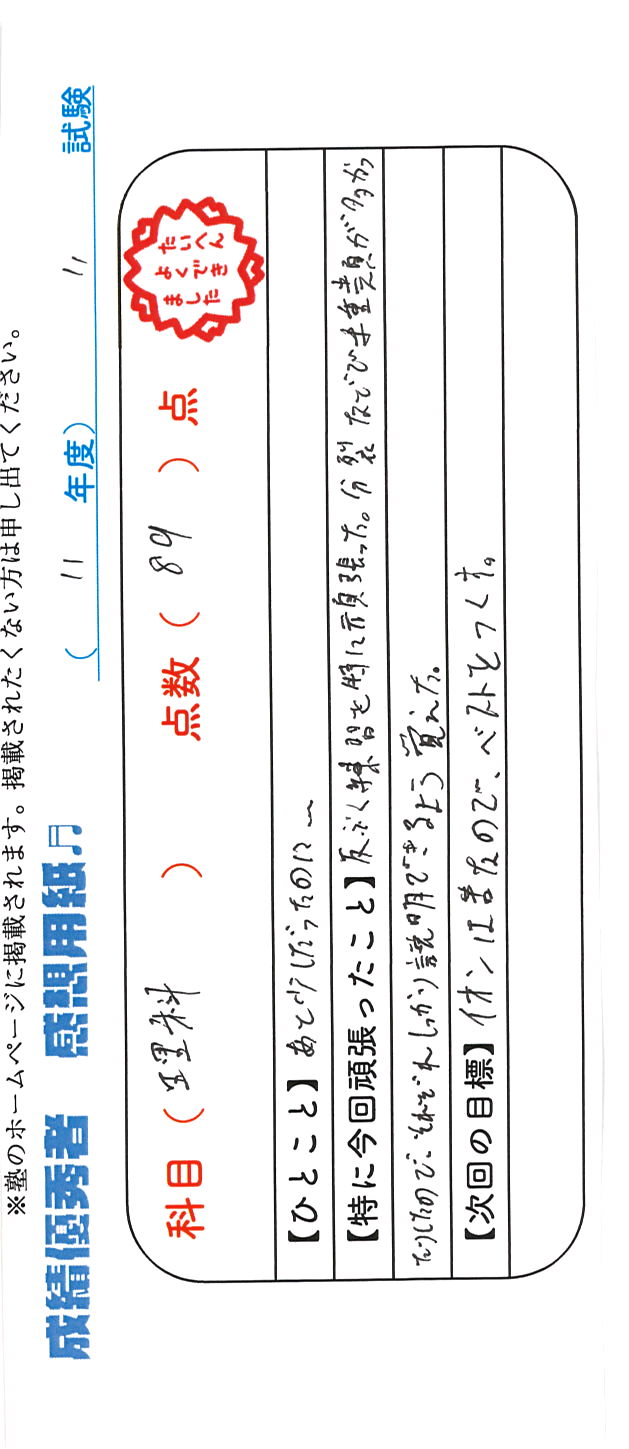 ※塾のホームページに掲載されます。掲載されたくない方は申し出てください。
成績優秀者 感想用紙♬ ( 11 年度) 11 試験
科目 ( 理科 ) 点数 ( 89 ) 点
たいへん
よくでき
ました
【ひとこと】あと少しだったのに〜
【特に今回頑張ったこと】反ぷく練習を特に頑張った。分裂などで種類が多かっ
たりしたので、それぞれしっかり説明できるよう覚えた。
【次回の目標】イオンは まなので、ベストをつくす。